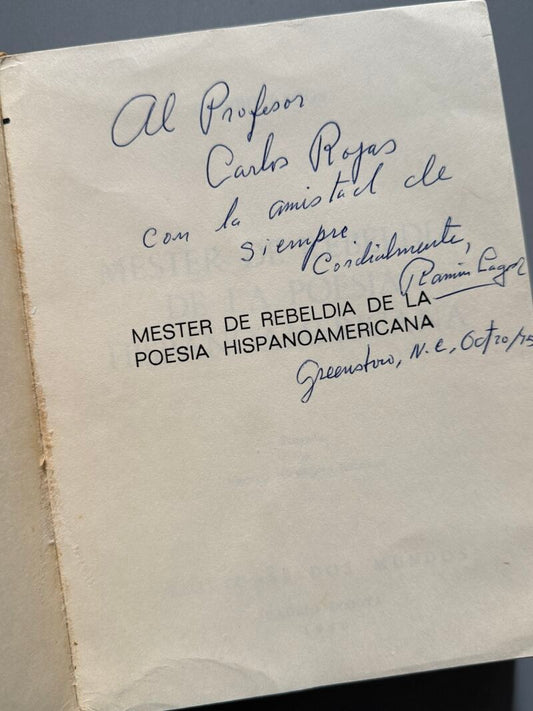 Al Profesor
Carlos Rojas
con la amistad de
siempre
Cordialmente,
Ramiro Lagos
MESTER DE REBELDIA DE LA
POESIA HISPANOAMERICANA
Greensboro, N.C., Oct 20/75